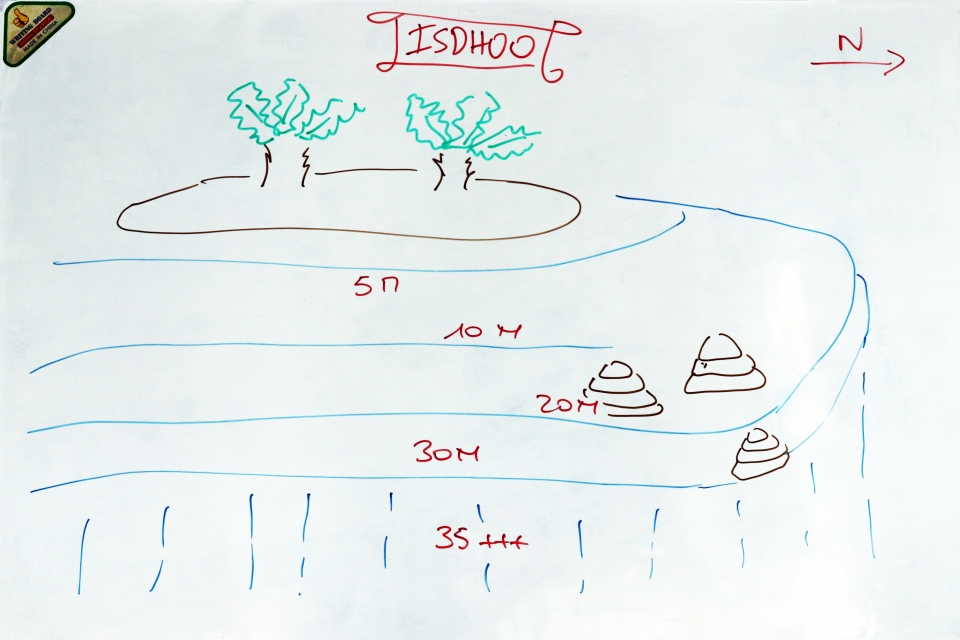 WRITING BOARD
MADE IN CHINA
ISDHOO
N
5M
10 M
20M
30M
35 +++